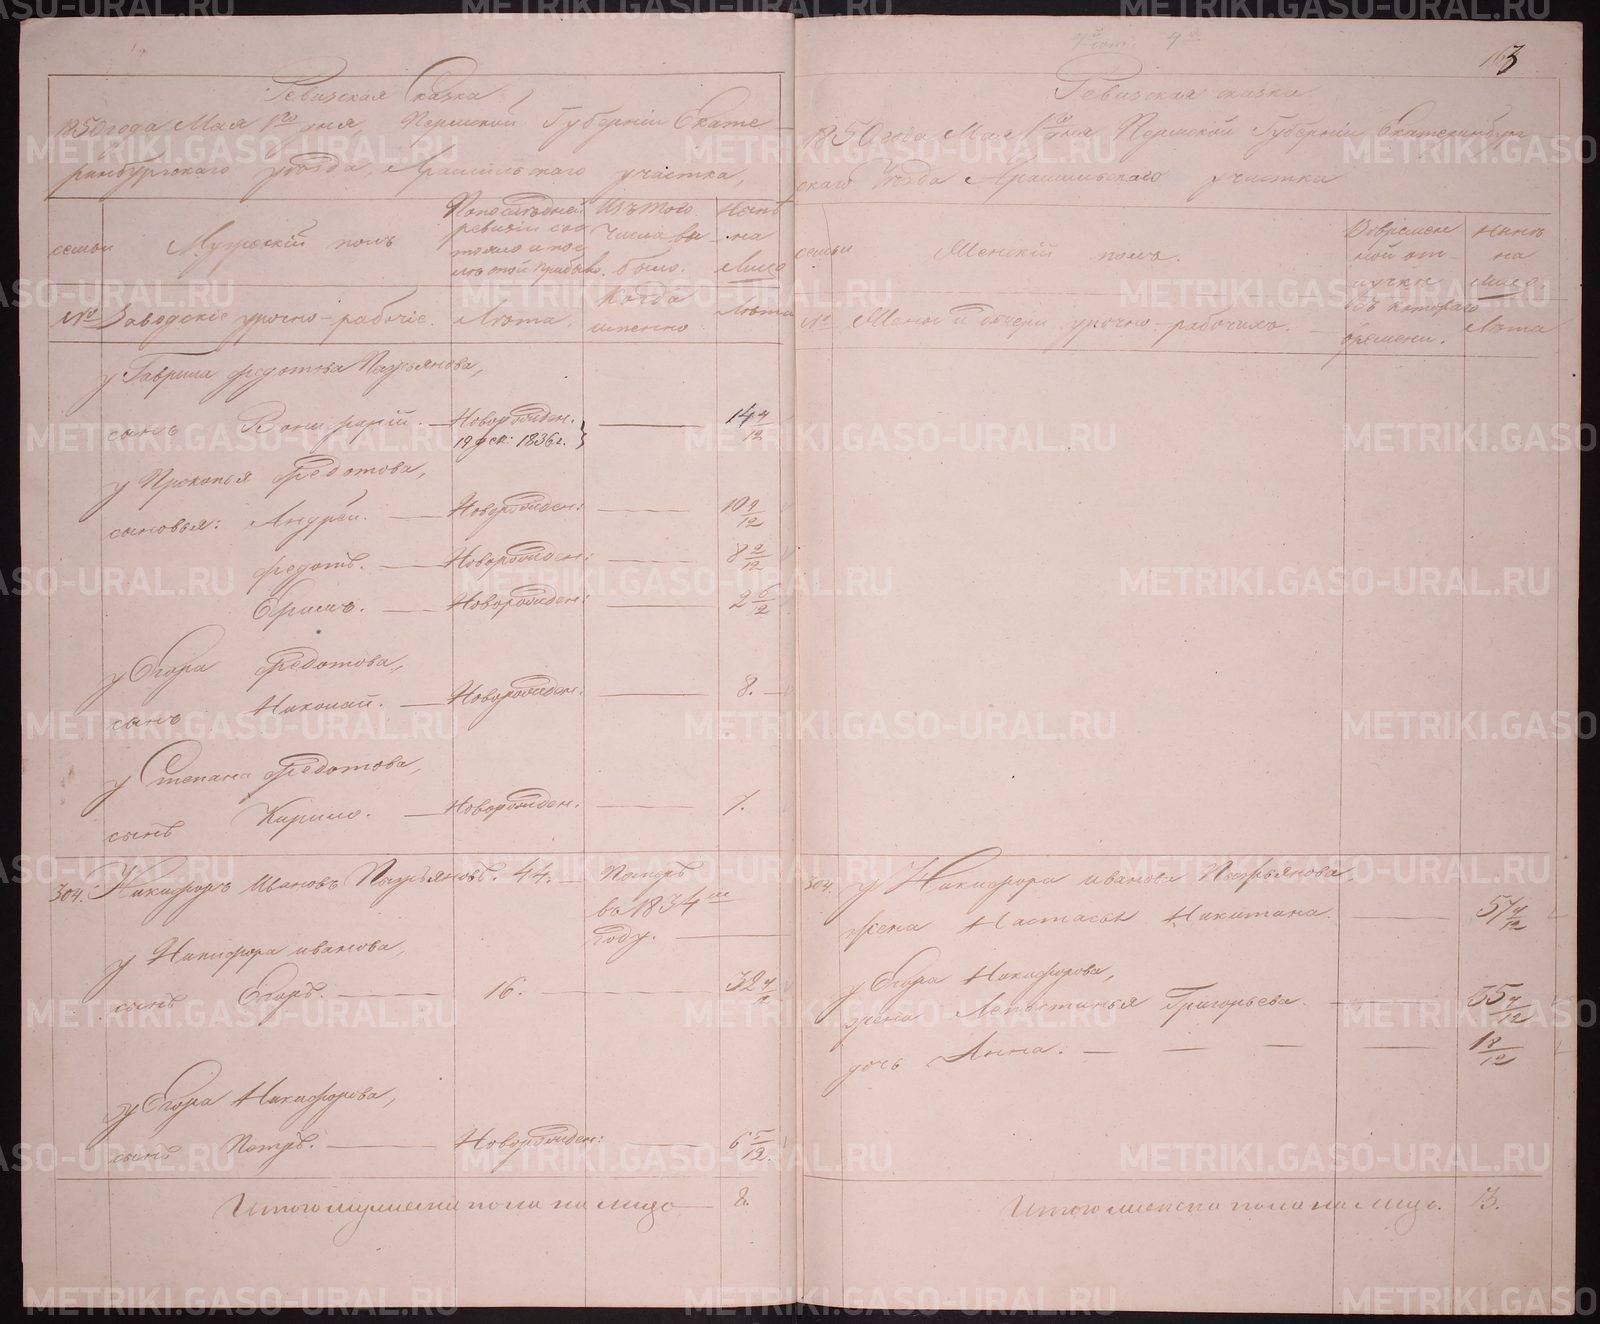 Ревизская Сказка
1850 года Мая 1го дня, Пермской Губерніи Екате-
ринбургскаго уѣзда, Арамильскаго участка,
семьи
Мужескій полъ
По последней
ревизіи сос
тояло и пос
лѣ оной прибыло.
Изъ того
числа вы
было.
Нынѣ
на
лицо
№
Заводскіе урочно-рабочіе.
Лѣта.
Когда
именно
Лѣта
у Гаврила Федотова Назрьянова,
сынъ Вонифатій. — Новорожден. 19 дек: 1836 г. — 14 4/12
у Прокопья Федотова,
сыновья: Андрей. — Новорожден: — 10 9/12
Федотъ. — Новорожден: — 8 2/12
Ефимъ. — Новорожден: — 2 6/12
у Егора Федотова,
сынъ Николай. — Новорожден. — 8. —
у Степана Федотова,
сынъ Кирило. — Новорожден. — 7.
304. Никифоръ Ивановъ 44. —
во 1834 м
Году. —
у Никифора Иванова,
сынъ Егоръ. — 16. — 32 4/12
у Егора Никифорова,
сынъ Петръ. — Новорожден: — 6 5/12
Итого мужеска пола на лицо — 8.
163
Ревизская сказка
1850 года Мая 1го дня Пермской Губерніи Екатеринбург-
скаго Уѣзда Арамильскаго участка
семьи
Женскій полъ.
Во времен
ной от-
лучки
Нынѣ
на
лицо.
№
Жены и дочери урочно-рабочихъ. —
Съ котораго
времени.
Лѣта
304. у Никифора Иванова
жена Настасья Никитина. — 57 4/12
у Егора Никифорова,
жена Григорьева. — 35 4/12
дочь Анна. — 1 8/12
Итого женска пола на лицо. 3.
METRIKI.GASO-URAL.RU